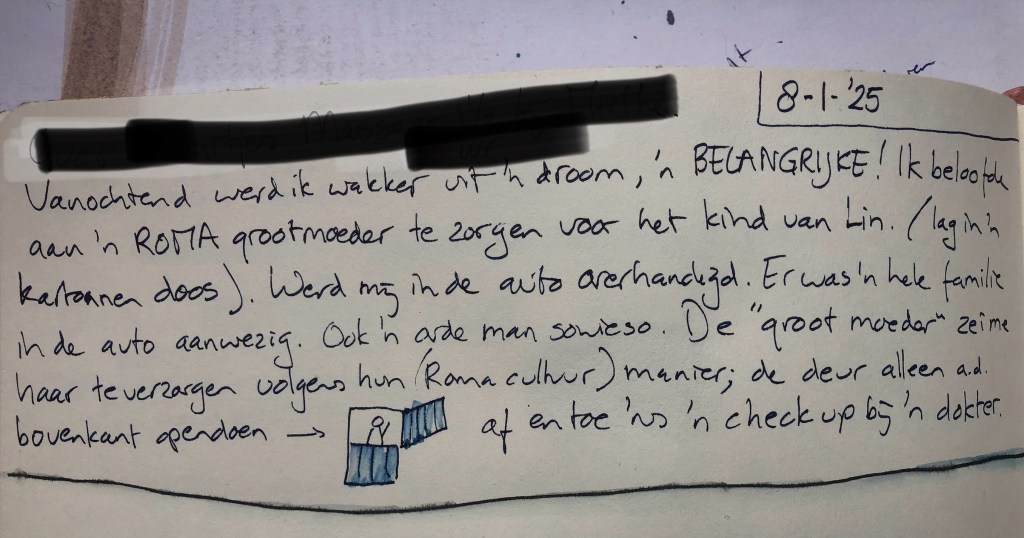 8-1-'25
Vanochtend werd ik wakker uit 'n droom, 'n BELANGRIJKE! Ik beloofde
aan 'n ROMA grootmoeder te zorgen voor het kind van Lin. (lag in 'n
kartonnen doos). Werd mij in de auto overhandigd. Er was 'n hele familie
in de auto aanwezig. Ook 'n oude man sowieso. De "groot moeder" zei me
haar te verzorgen volgens hun (Roma cultuur) manier; de deur alleen a.d.
bovenkant opendoen → af en toe 'ns 'n check up bij 'n dokter.